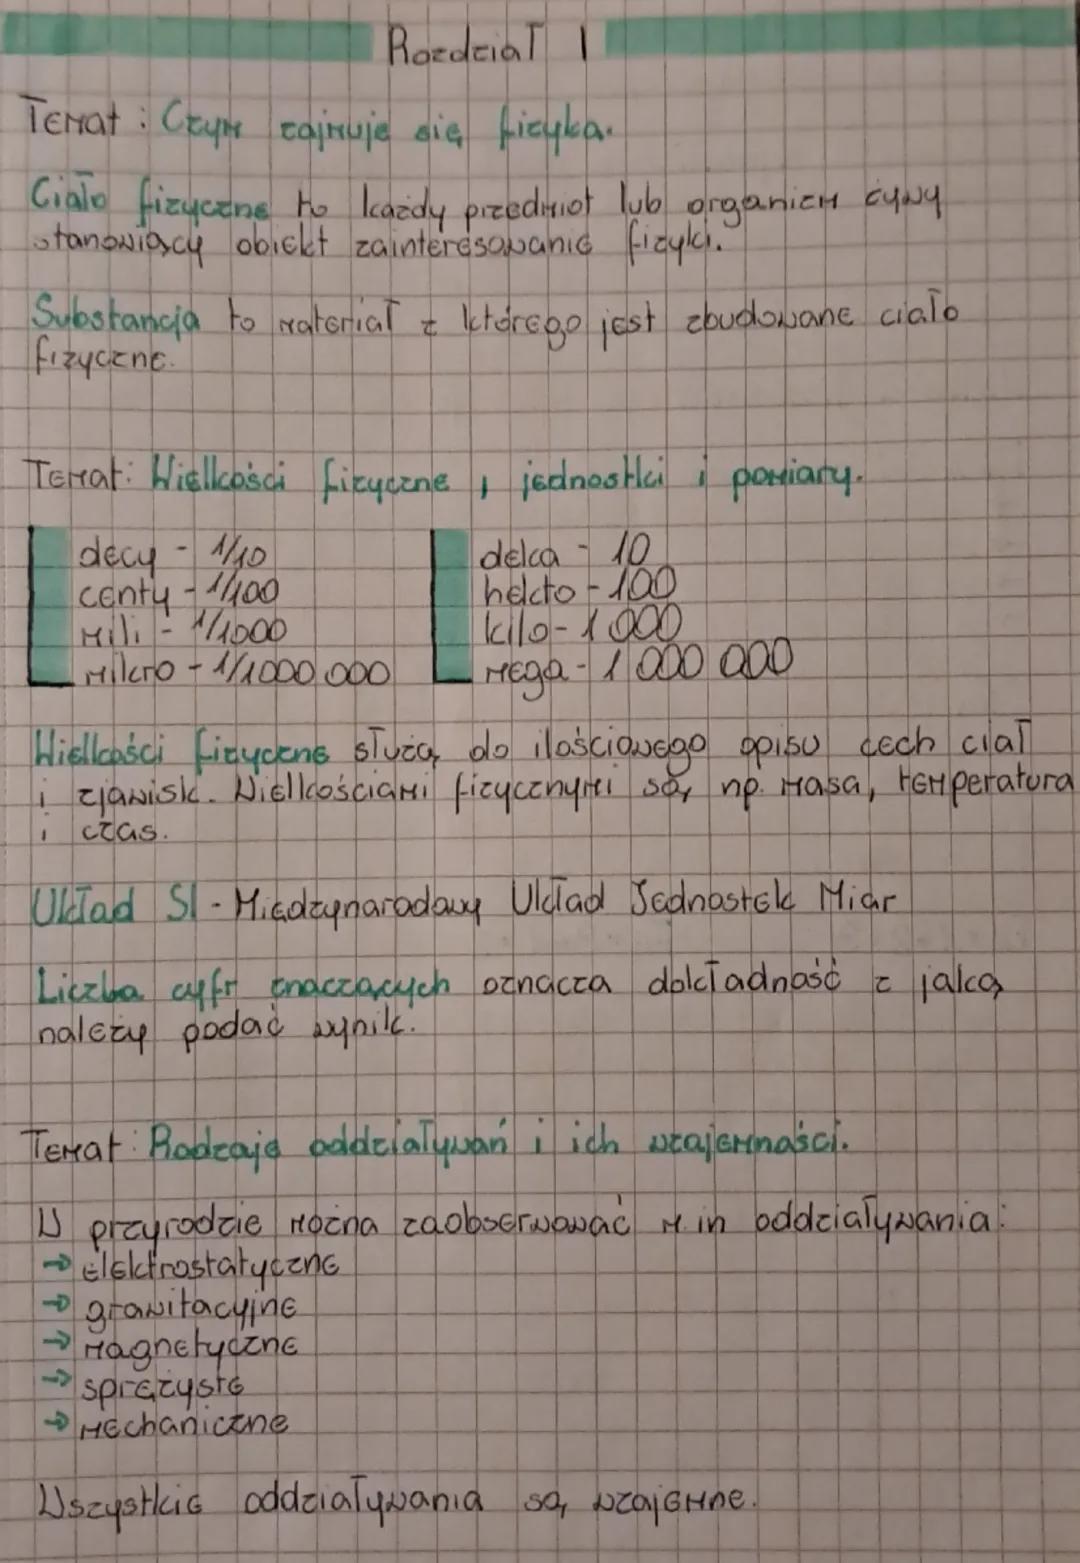 Rozdział 1
Temat: Czym zajmuje się fizyka.
Ciało fizyczne to każdy przedmiot lub organizm żywy
stanowiący obiekt zainteresowanie fizyki.
Substancja to materiał z którego jest zbudowane ciało
fizyczne.
Temat: Wielkości fizyczne, jednostki i pomiary.
decy - 1/10
centy - 1/100
mili - 1/1000
mikro - 1/1000 000
deka - 10
hekto - 100
kilo - 1 000
mega - 1 000 000
Wielkości fizyczne służą do ilościowego opisu cech ciał
i zjawisk. Wielkościami fizycznymi są, np. masa, temperatura
i czas.
Układ SI - Międzynarodowy Układ Jednostek Miar
Liczba cyfr znaczących oznacza dokładność z jaką
należy podać wynik.
Temat: Rodzaje oddziaływań i ich wzajemności.
W przyrodzie można zaobserwować m.in oddziaływania:
→ elektrostatyczne
→ grawitacyjne
→ magnetyczne
→ sprężyste
→ mechaniczne
Wszystkie oddziaływania są wzajemne.